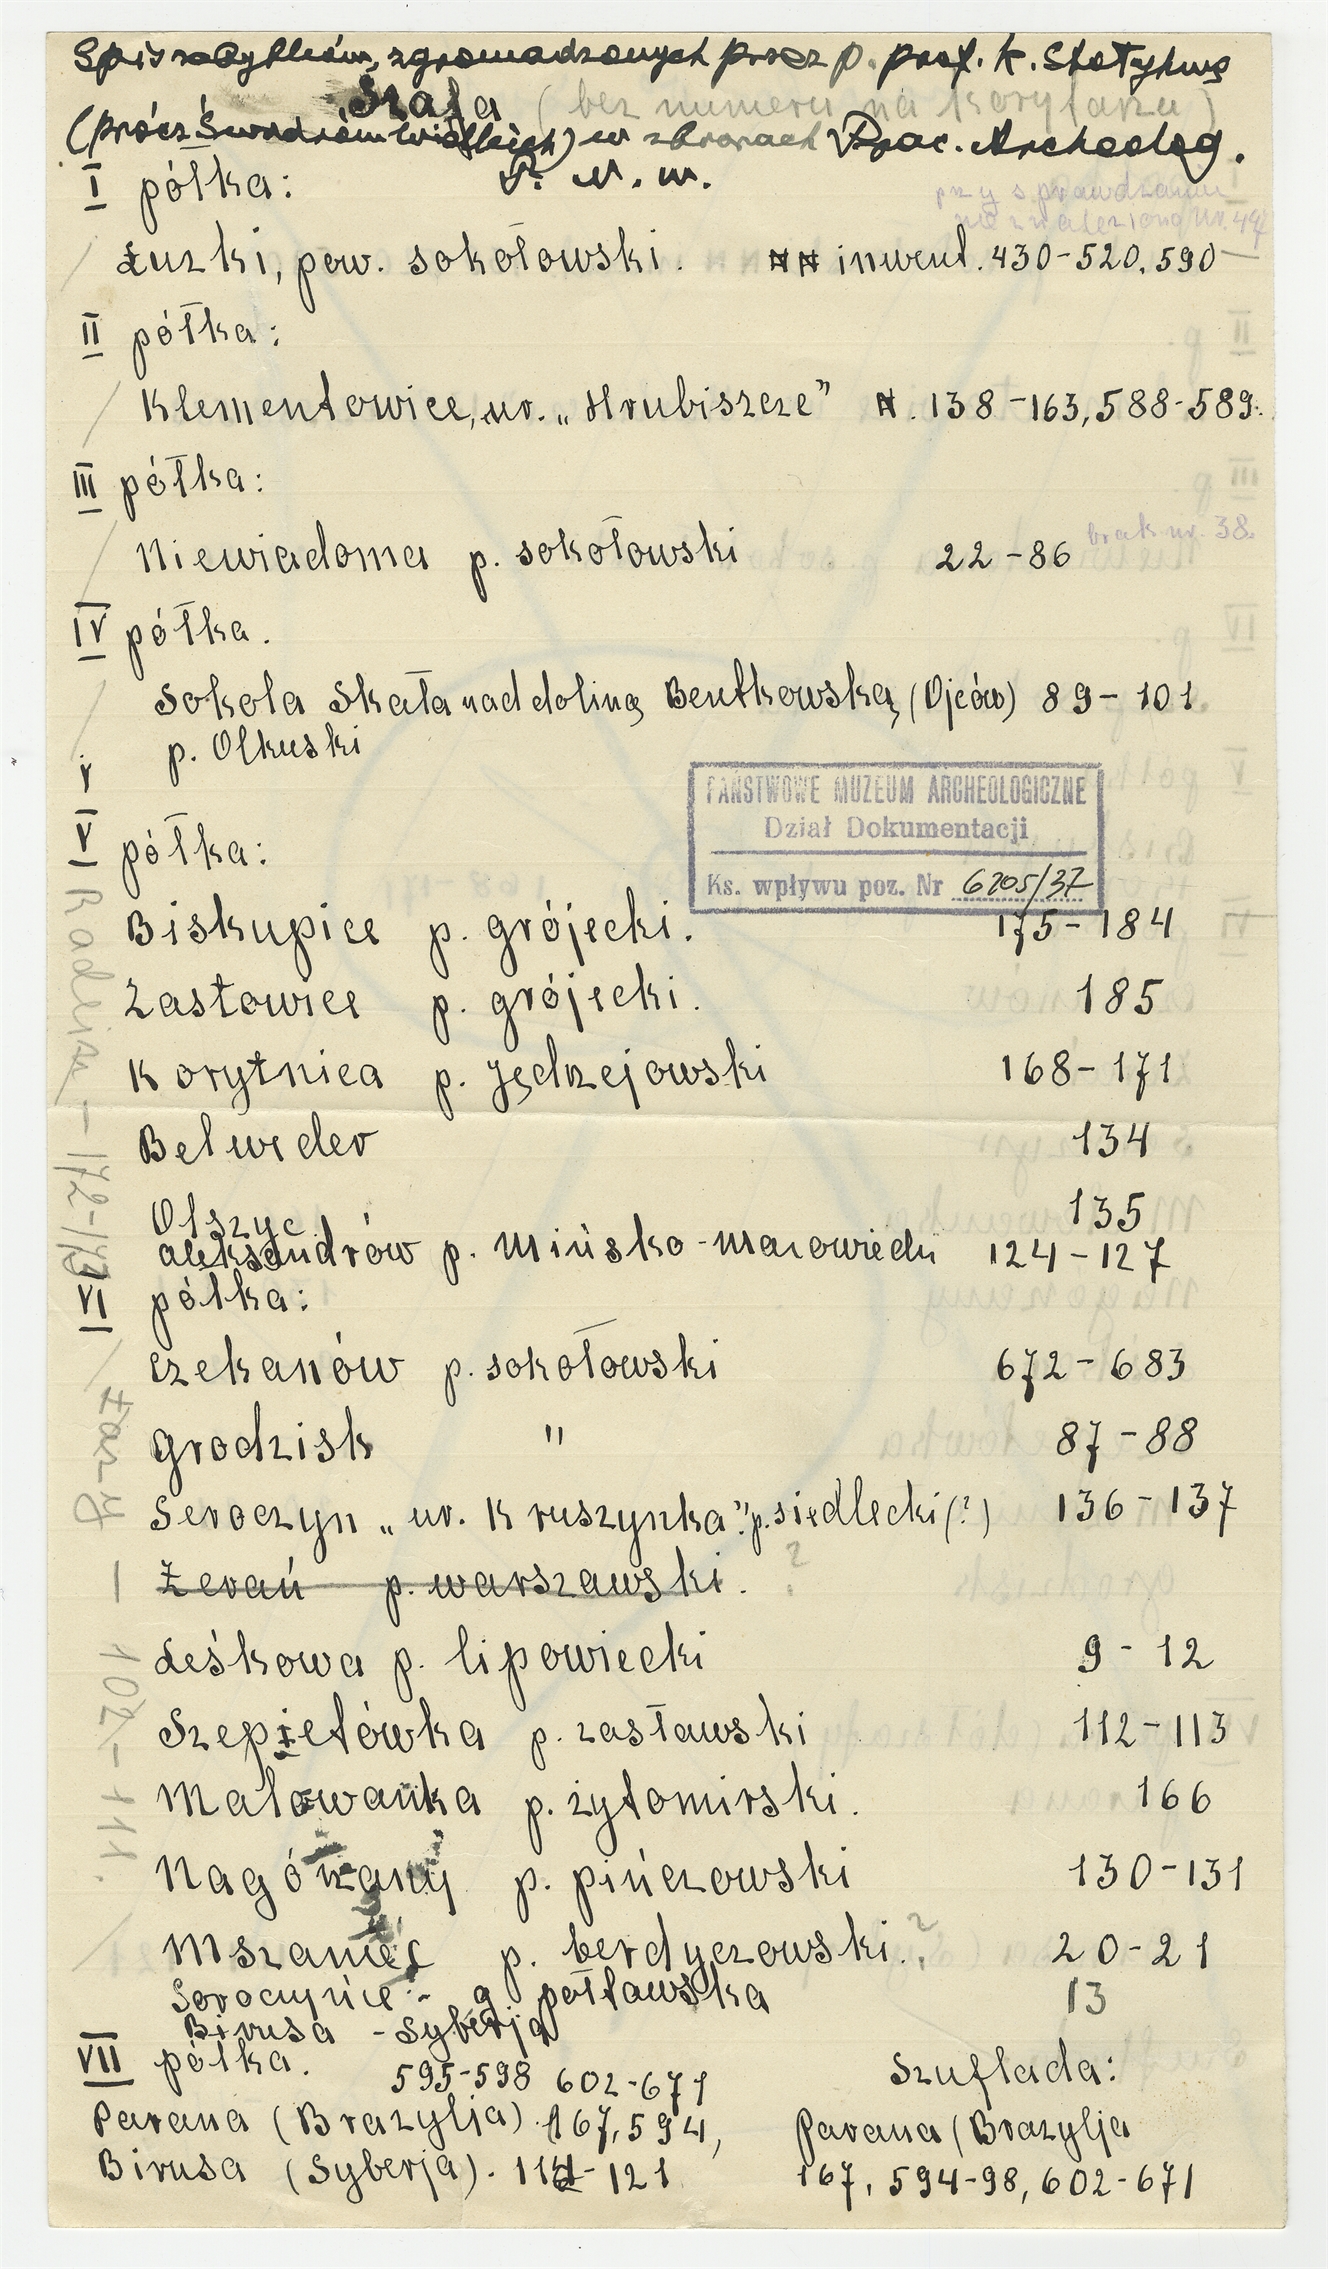 Spis zabytków, zgromadzonych przez p. prof. K. Stołyhwę
Szafa (bez numeru na korytarzu)
(prócz Świdrów Wielkich) w zbiorach Prac. Archeolog.
T. N. W.
I półka:
przy sprawdzaniu
nie znaleziono nr. 447
Łuzki, pow. sokołowski. NN inwent. 430-520, 590
II półka:
Klementowice, ur. „Hrubiszcze" N. 138-163, 588-589.
III półka:
Niewiadoma p. sokołowski 22-86 brak nr. 38.
IV półka.
Sokola Skała nad doliną Bentkowską, (Ojców) 89-101
p. Olkuski
V
V półka:
PAŃSTWOWE MUZEUM ARCHEOLOGICZNE
Dział Dokumentacji
Ks. wpływu poz. Nr 6205/37
Biskupice p. grójecki. 175-184
Zastowice p. grójecki. 185
Korytnica p. Jędrzejowski 168-171
Belweder 134
Olszyc 135
Aleksandrów p. Mińsko-Mazowiecki 124-127
- 172-173
VI półka:
Czekanów p. sokołowski 672-683
Grodzisk " 87-88
Seroczyn „ur. Kruszynka". p. siedlecki (?) 136-137
Żerań p. warszawski. ?
Leśkowa p. lipowiecki 9-12
Szepietówka p. zasławski 112-113
Malowanka p. żytomirski. 166
Nagórzany p. pińczowski 130-131
Mszaniec p. berdyczowski. ? 20-21
Soroczyńce - g. połtawska 13
Birusa - Syberja
102-111.
VII półka.
595-598 602-671
Parana (Brazylja). 167, 594,
Birusa (Syberja). 114-121
Szuflada:
Parana (Brazylja
167, 594-98, 602-671